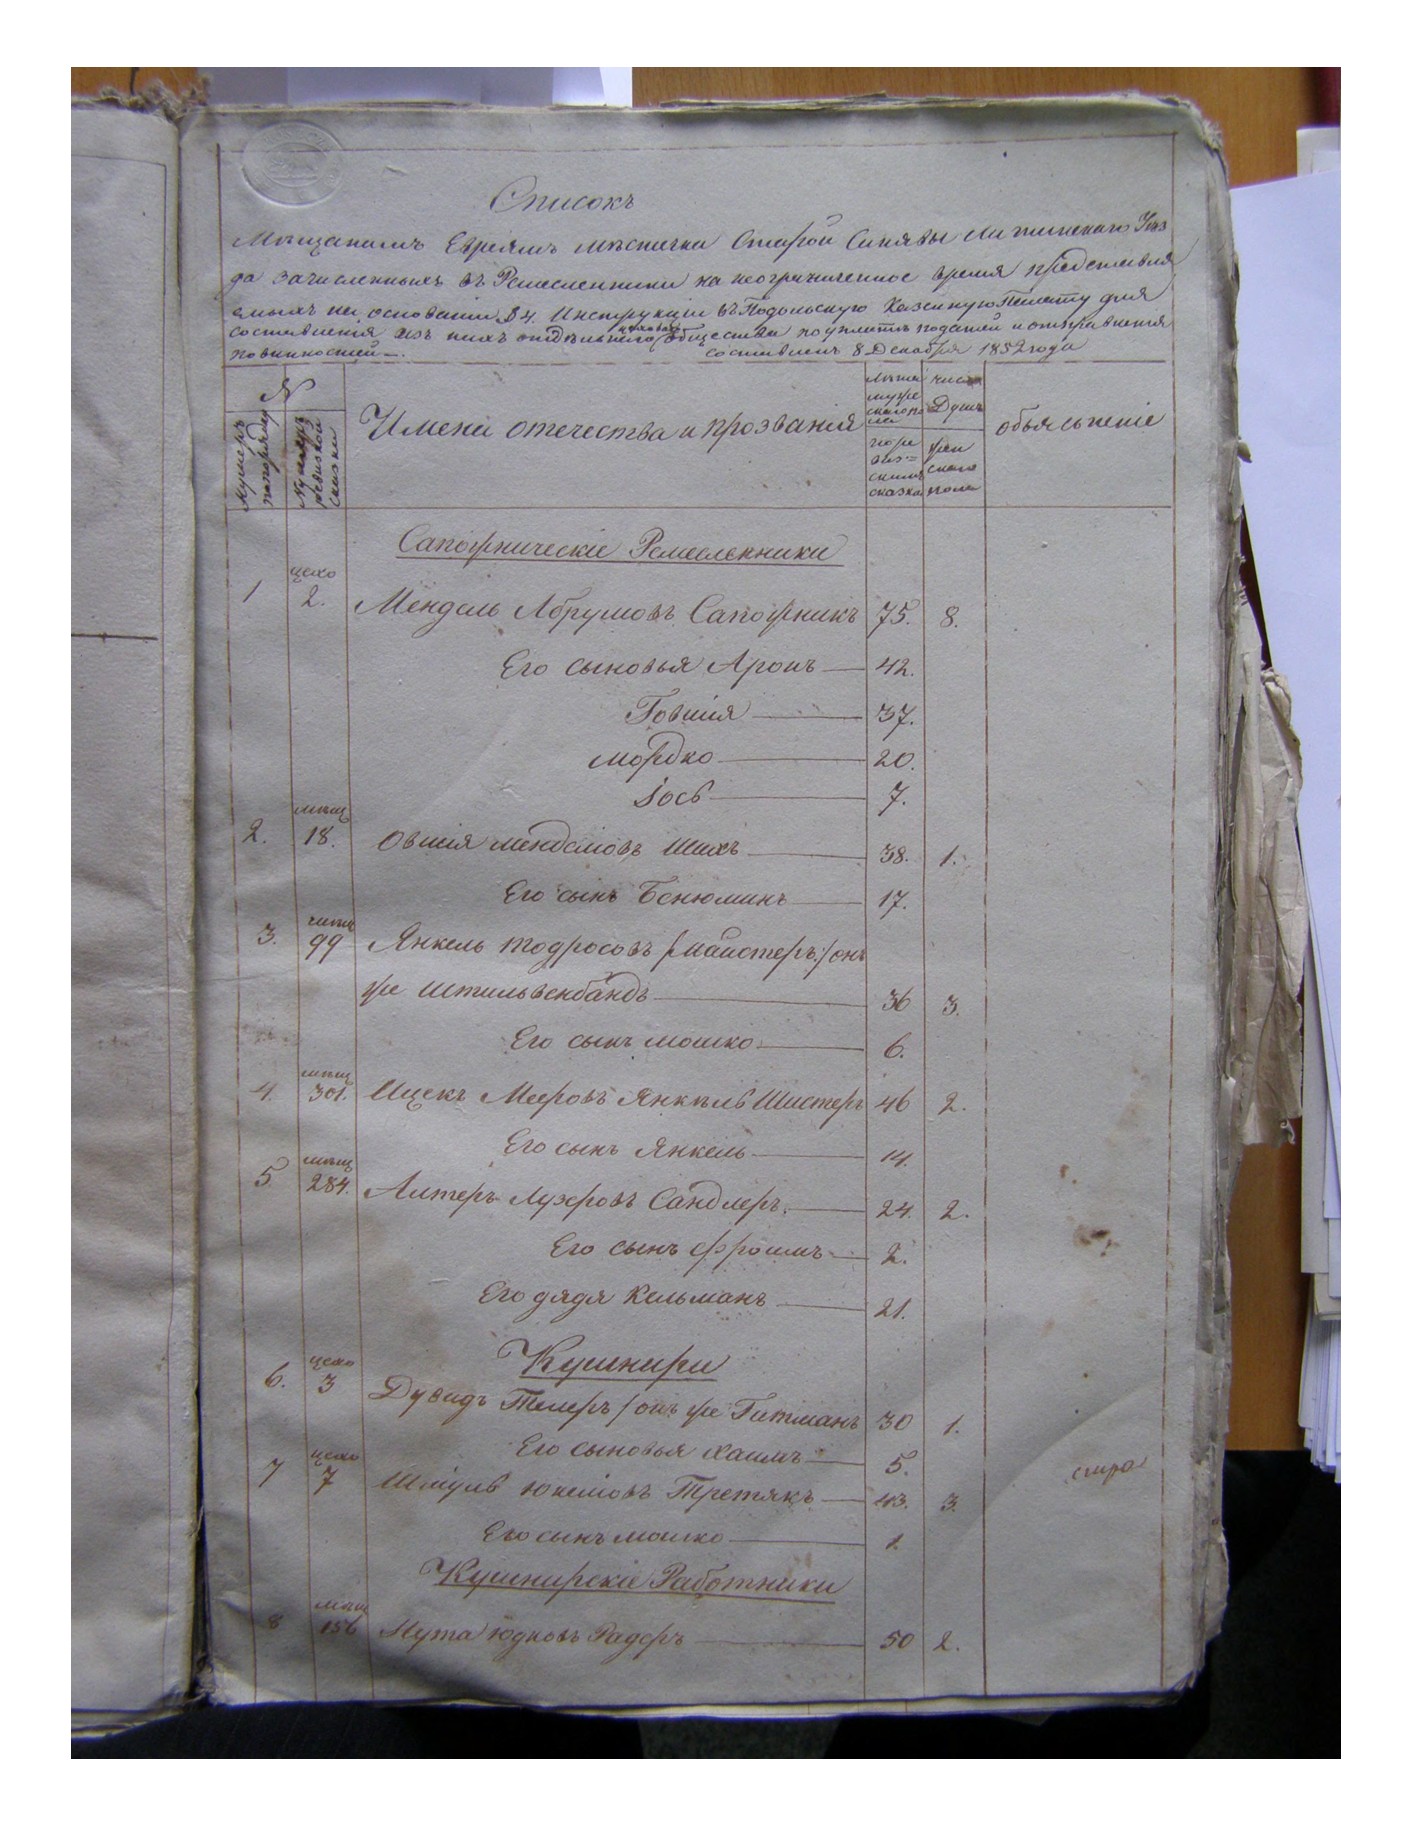 Списокъ
Мѣщанамъ Евреямъ мѣстечка Старой Синявы Литинскаго Уѣз
да зачисленныхъ въ Ремесленники на неограниченное время представля
емыхъ на основаніи § 4. Инструкціи въ Подольскую Казенную Палату для
составленія изъ нихъ отдѣльнаго цеховаго общества по уплатѣ податей и отправленія
повинностей Составленъ 8 Декабря 1852 года
№
Нумеръ попорядку
Нумеръ ревизкой сказки
Имена отечества и прозванія
Лѣта мужескаго пола по ревизскимъ сказкамъ
число Душъ женскаго пола
объясненіе
Сапожническіе Ремесленники
1 цехо 2. Мендель Абрумовъ Сапожникъ 75. 8.
Его сыновья Аронъ 42.
Говшія 37.
Мордко 20.
Іось 7.
2. мѣщ 18. Овшія Менделіовъ Шихъ 38. 1.
Его сынъ Бенюминъ 17.
3. 99 Янкель Тодросовъ /: Маистеръ :/ онъ
же Штильвенбандъ 36 3.
Его сынъ Мошко 6.
4. мѣщ 301. Ицекъ Мееровъ Янкель Шистеръ 46 2.
Его сынъ Янкель 14.
5 мѣщ 284. Алтеръ Лузеровъ Сандлеръ 24. 2.
Его сынъ Фроимъ 2.
Его дядя Кельманъ 21.
Кушнири
6. цехо 3 Дувидъ Телеръ / онъ же Гитманъ 30 1.
Его сыновья Хаимъ 5.
7 цехо 7 Шміуль Юкеліовъ Третякъ 43. 3.
Его сынъ Мошко 1.
Кушнирскіе Работники
8 мѣщ 156 Мута Юдковъ Радеръ 50 2.